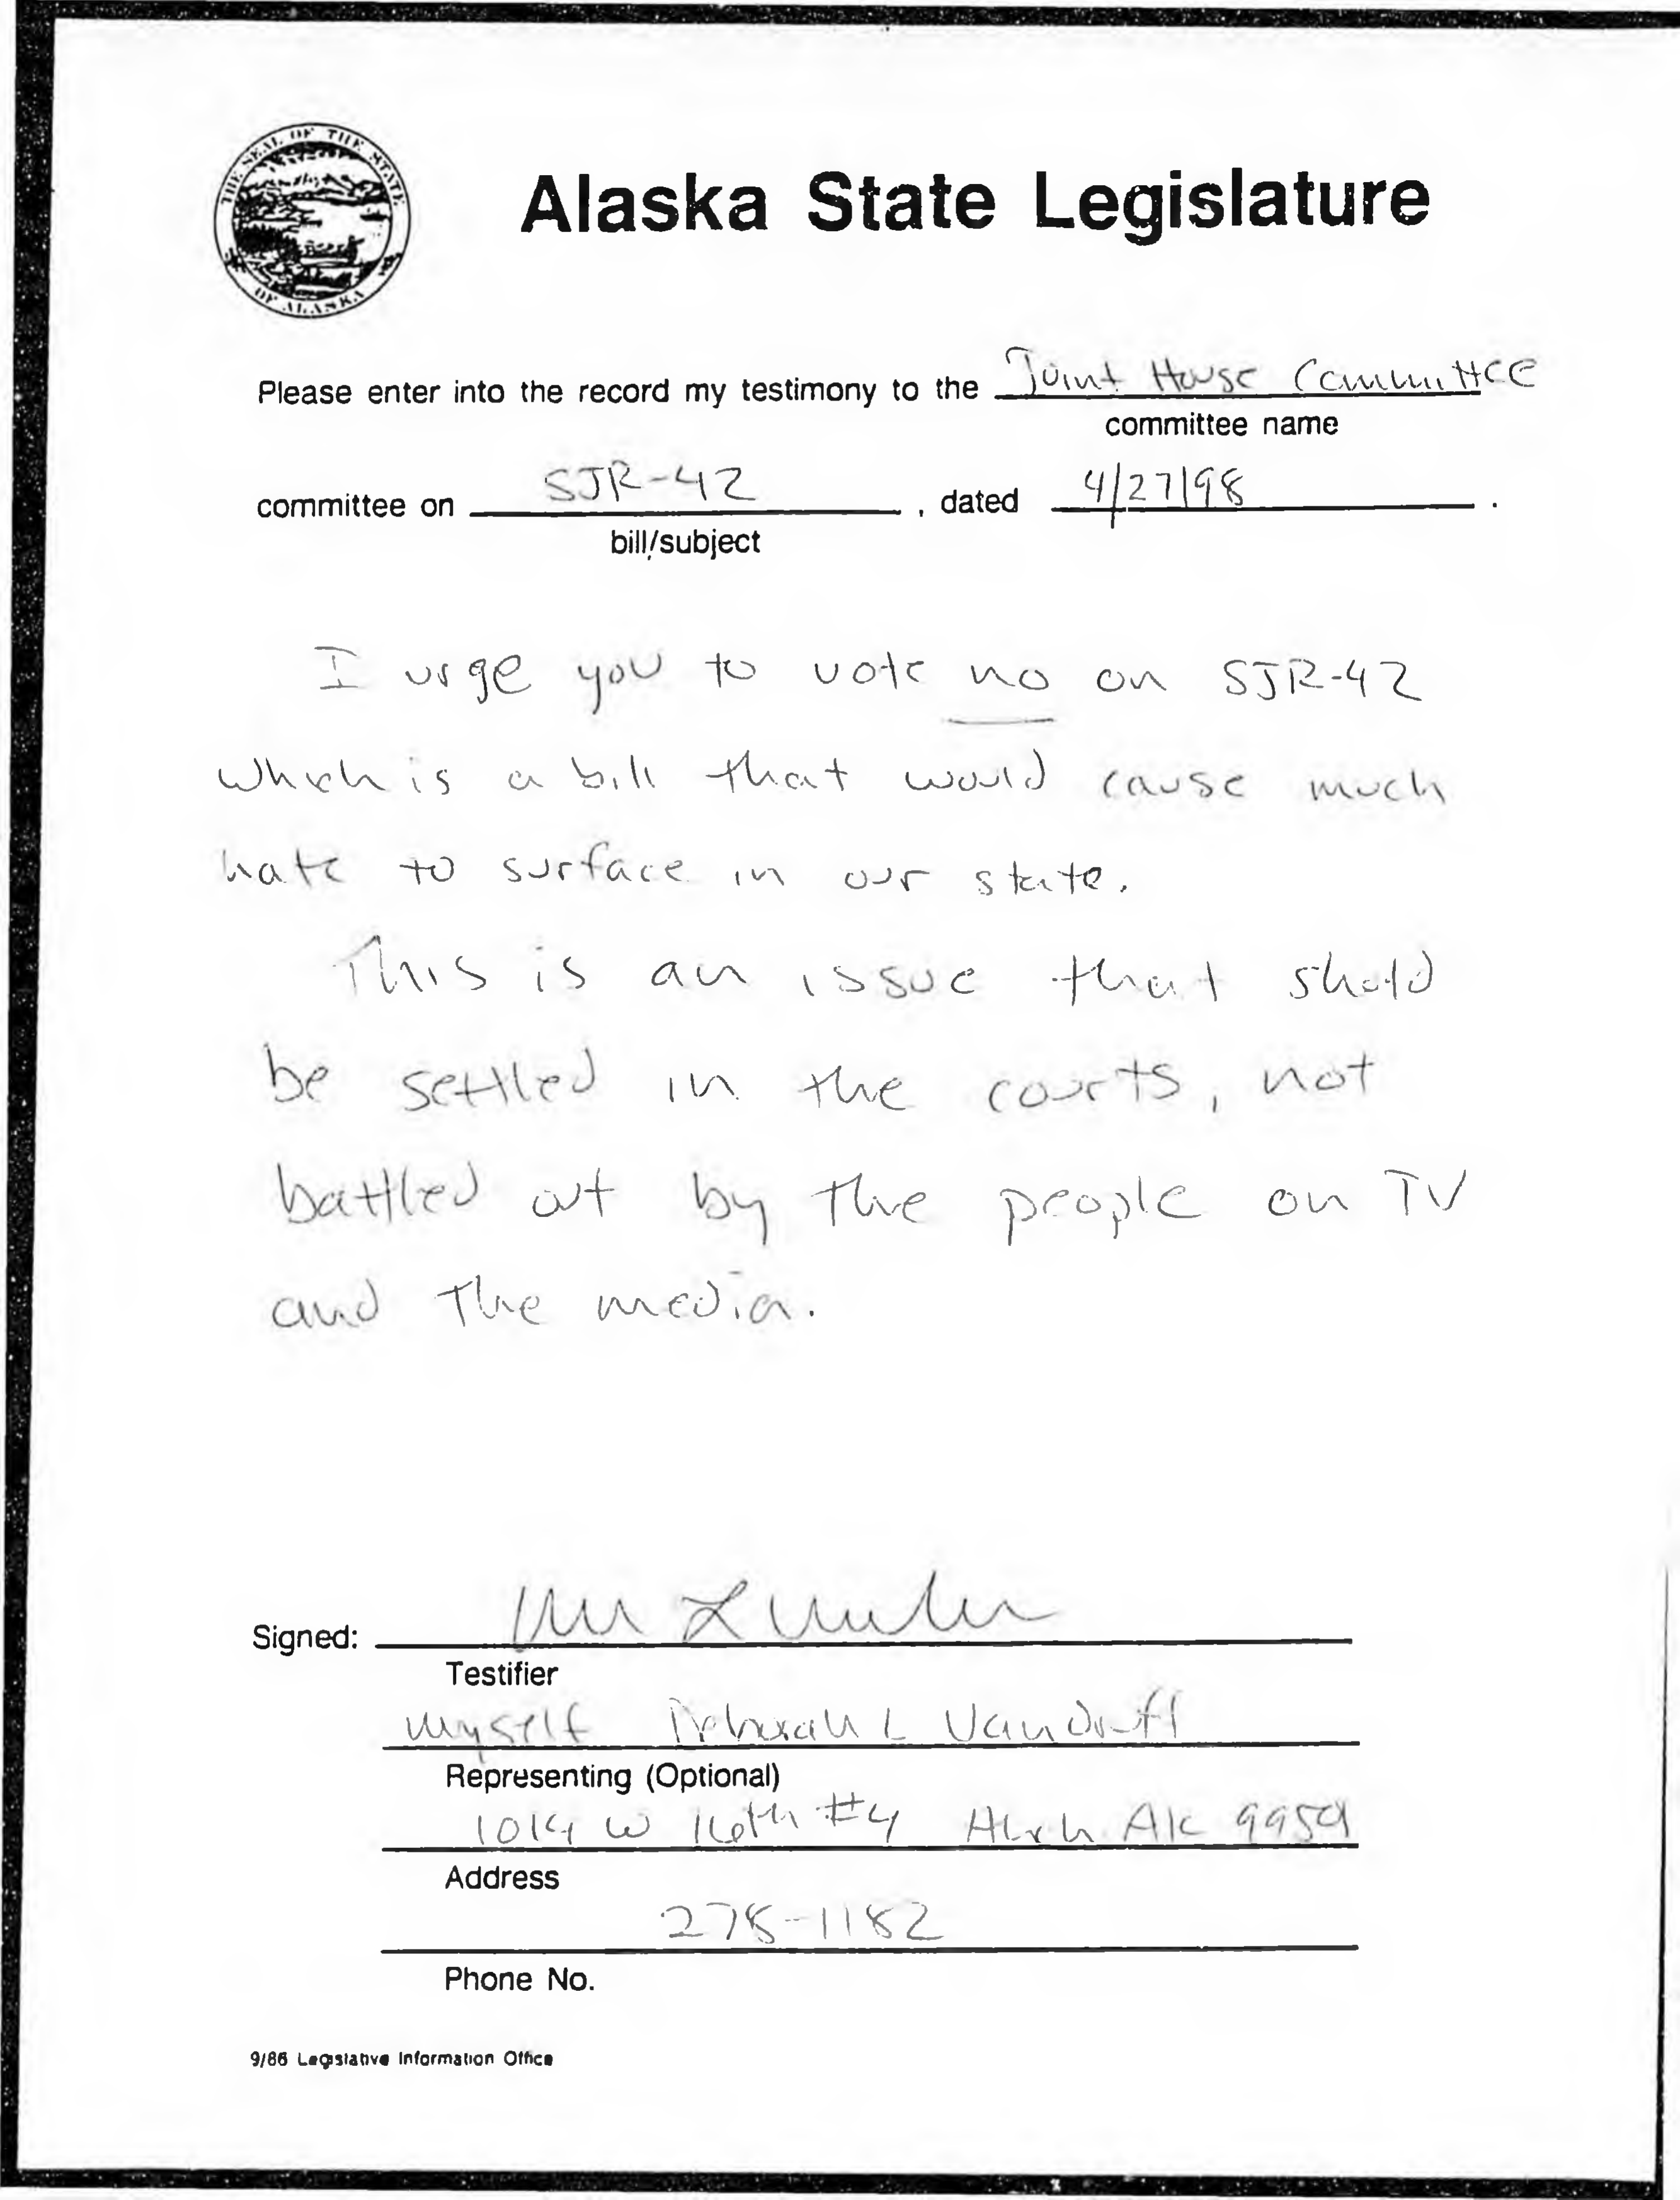 THE SEAL OF THE STATE
OF ALASKA
Alaska State Legislature
Please enter into the record my testimony to the Joint House Committee
committee name
committee on SJR-42 , dated 4/27/98 .
bill/subject
I urge you to vote no on SJR-42
which is a bill that would cause much
hate to surface in our state.
This is an issue that shold
be settled in the courts, not
battled out by the people on TV
and the media.
Signed:
Testifier
myself Deborah L Vandruff
Representing (Optional)
1014 W 16th #4 Anch AK
Address
278-1182
Phone No.
9/86 Legislative Information Office